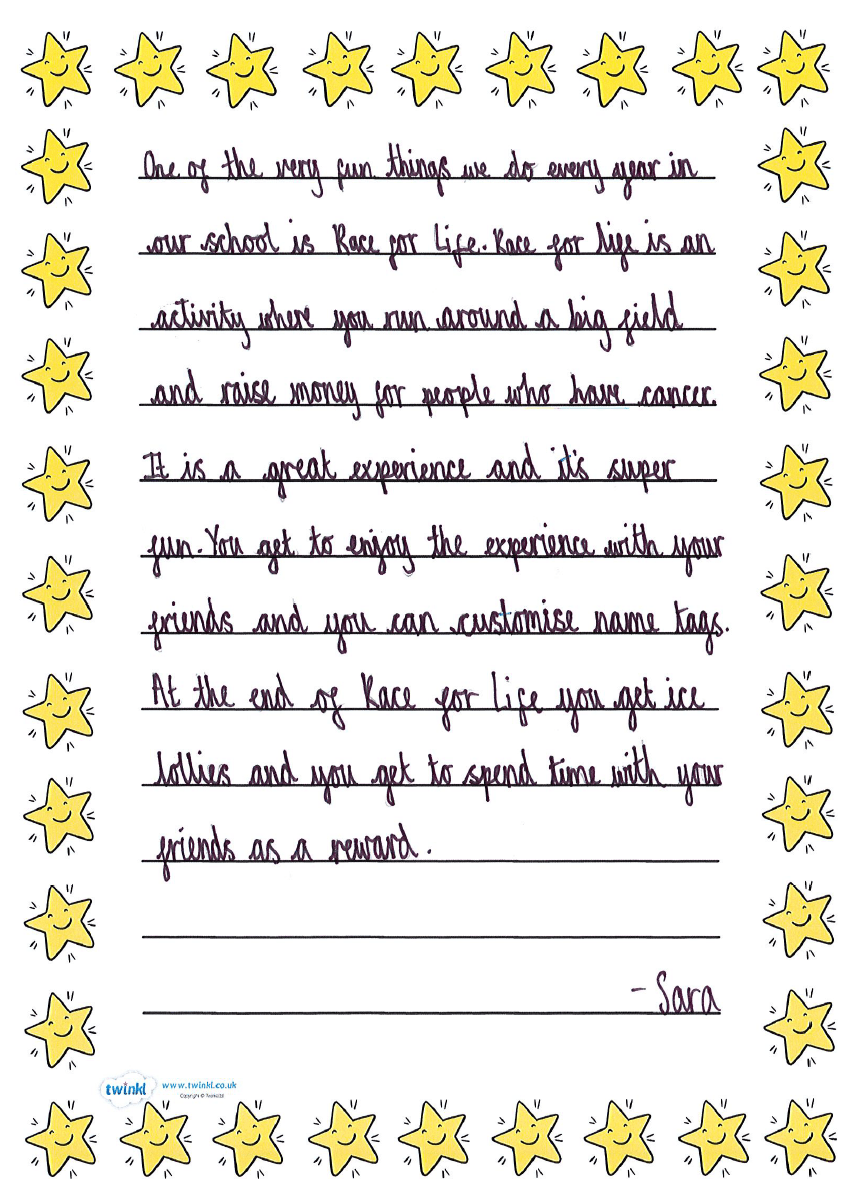 One of the very fun things we do every year in
our school is Race for Life. Race for life is an
activity where you run around a big field
and raise money for people who have cancer.
It is a great experience and it's super
fun. You get to enjoy the experience with your
friends and you can customise name tags.
At the end of Race for Life you get ice
lollies and you get to spend time with your
friends as a reward.
- Sara
twinkl www.twinkl.co.uk